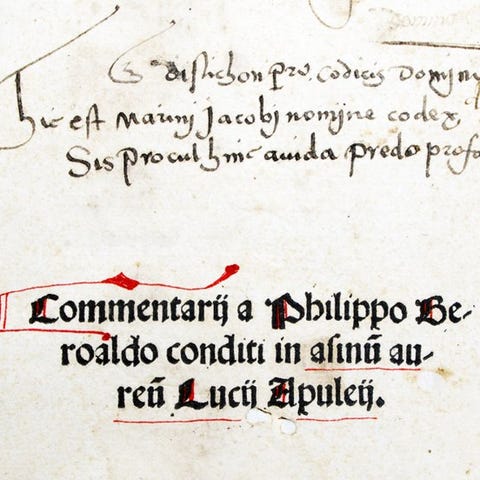 distichon pro codicis Domin
Hic est Marini Jacobj nomine codex,
Sis procul hinc auida predo prof
Commentarij a Philippo Be-
roaldo conditi in asinū au-
reū Lucij Apuleij.